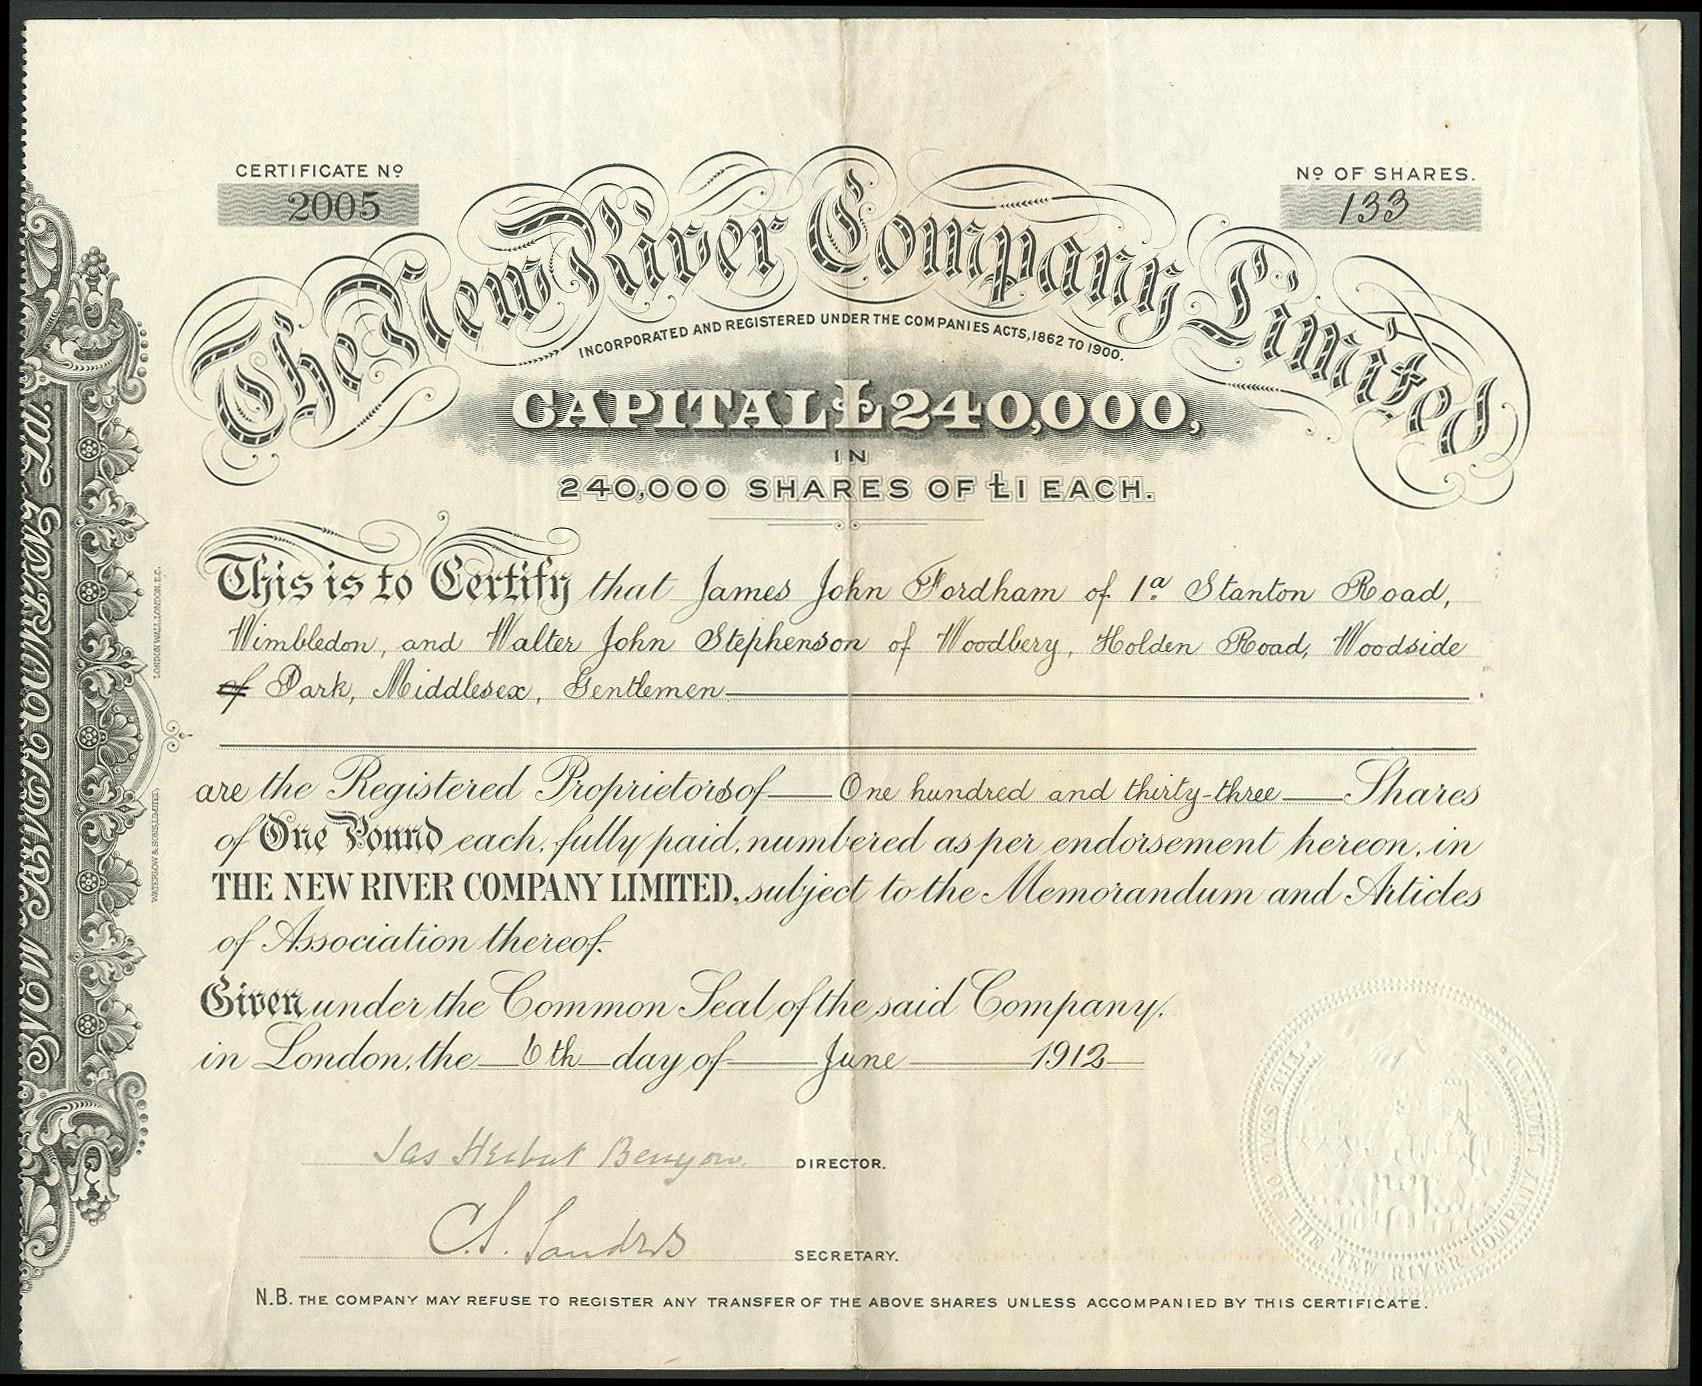 CERTIFICATE Nº
2005
Nº OF SHARES.
133
The New River Company Limited
INCORPORATED AND REGISTERED UNDER THE COMPANIES ACTS, 1862 TO 1900.
CAPITAL £240,000,
IN
240,000 SHARES OF £1 EACH.
This is to Certify that James John Fordham of 1a Stanton Road,
Wimbledon, and Walter John Stephenson of Woodbery, Holden Road, Woodside
of Park, Middlesex, Gentlemen
are the Registered Proprietors of One hundred and thirty-three Shares
of One Pound each, fully paid, numbered as per endorsement hereon, in
THE NEW RIVER COMPANY LIMITED, subject to the Memorandum and Articles
of Association thereof.
Given under the Common Seal of the said Company,
in London, the 6th day of June 1912
Jas Herbert Benyon DIRECTOR.
C.S. Sanders SECRETARY.
N.B. THE COMPANY MAY REFUSE TO REGISTER ANY TRANSFER OF THE ABOVE SHARES UNLESS ACCOMPANIED BY THIS CERTIFICATE.
WATERLOW & SONS LIMITED,
LONDON WALL, LONDON, E.C.
THE SEAL OF THE NEW RIVER COMPANY LIMITED